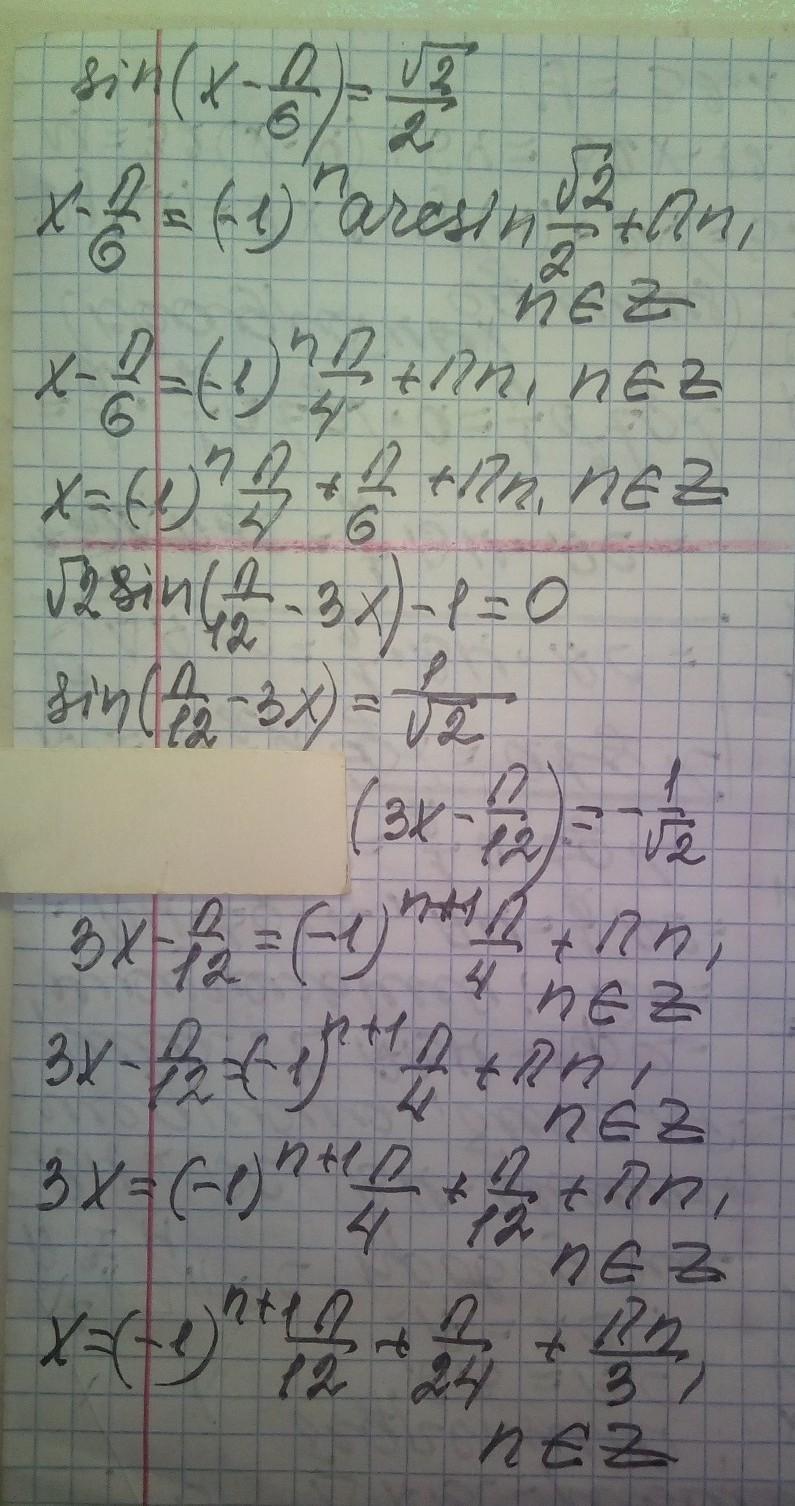 sin(x - П/6) = √2/2
x - П/6 = (-1)^n arcsin √2/2 + Пn,
n ∈ Z
x - П/6 = (-1)^n П/4 + Пn, n ∈ Z
x = (-1)^n П/4 + П/6 + Пn, n ∈ Z
√2 sin(П/12 - 3x) - 1 = 0
sin(П/12 - 3x) = 1/√2
(3x - П/12) = - 1/√2
3x - П/12 = (-1)^n+1 П/4 + Пn,
n ∈ Z
3x - П/12 = (-1)^n+1 П/4 + Пn,
n ∈ Z
3x = (-1)^n+1 П/4 + П/12 + Пn,
n ∈ Z
x = (-1)^n+1 П/12 + П/24 + Пn/3,
n ∈ Z